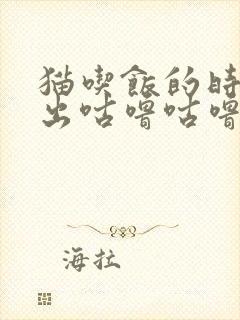 猫喫飯的時
出咕嚕咕嚕
海拉